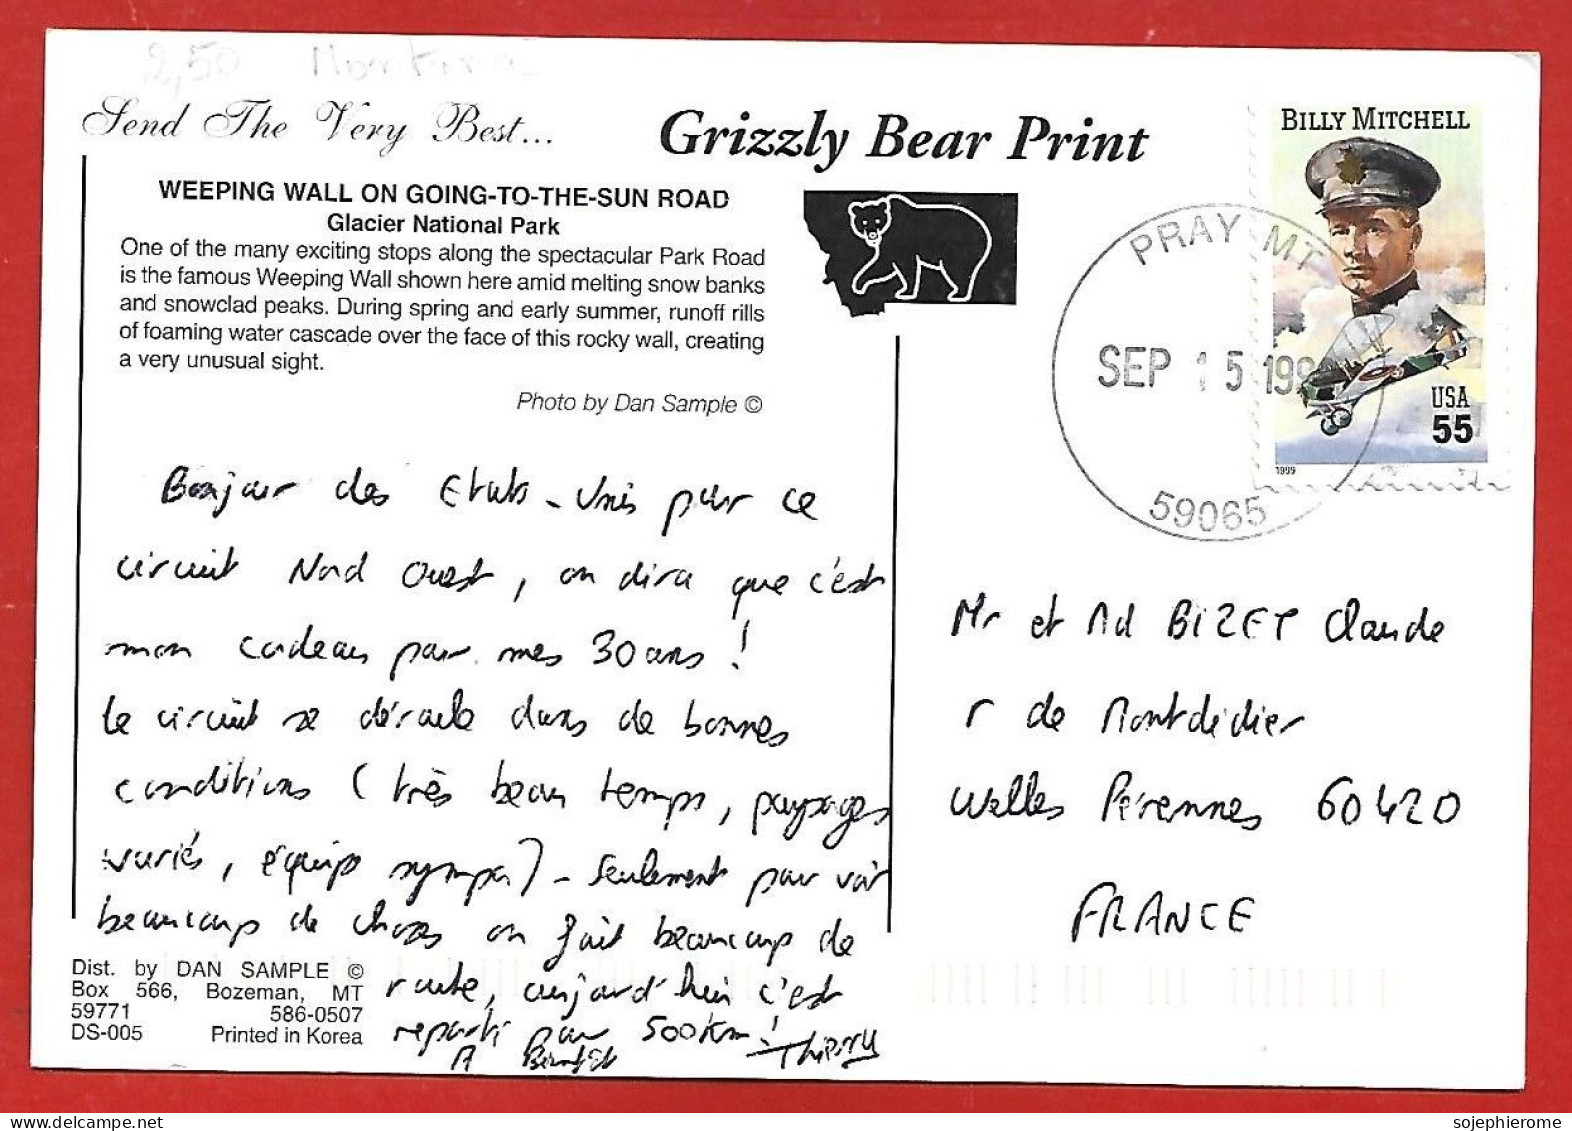 2,50 Montana
Send The Very Best...
Grizzly Bear Print
WEEPING WALL ON GOING-TO-THE-SUN ROAD
Glacier National Park
One of the many exciting stops along the spectacular Park Road
is the famous Weeping Wall shown here amid melting snow banks
and snowclad peaks. During spring and early summer, runoff rills
of foaming water cascade over the face of this rocky wall, creating
a very unusual sight.
Photo by Dan Sample ©
BILLY MITCHELL
USA
55
1999
PRAY MT
SEP 15 199
59065
Bonjour des Etats-Unis pour ce
circuit Nord Ouest, on dira que c'est
mon cadeau pour mes 30 ans !
Le circuit se déroule dans de bonnes
conditions (très beau temps, paysages
variés, équipe sympa) - Seulement pour voir
beaucoup de choses on fait beaucoup de
route, aujourd'hui c'est
reparti pour 500 km !
A Bientôt Thierry
Mr et Md BIZET Claude
r de Montdidier
Welles Pérennes 60420
FRANCE
Dist. by DAN SAMPLE ©
Box 566, Bozeman, MT
59771 586-0507
DS-005 Printed in Korea
sojephierome